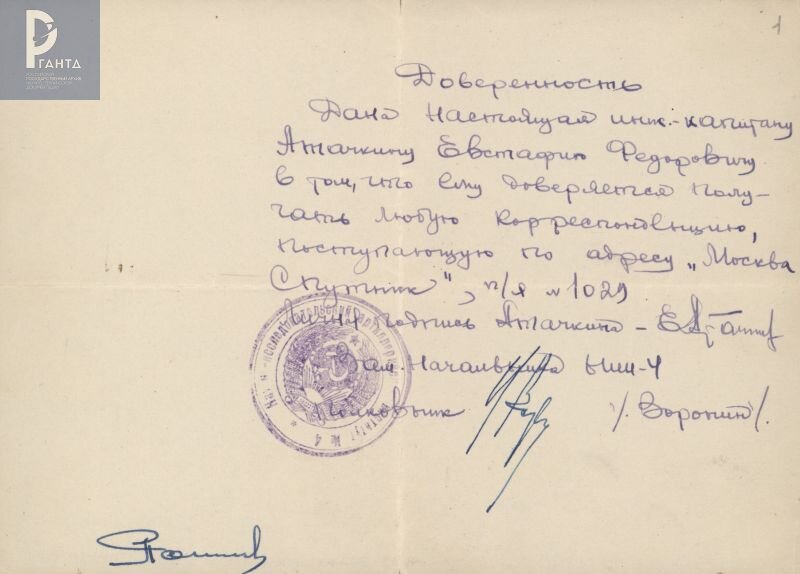 РГАНТД
РОССИЙСКИЙ
ГОСУДАРСТВЕННЫЙ АРХИВ
НАУЧНО-ТЕХНИЧЕСКОЙ
ДОКУМЕНТАЦИИ
1
Доверенность
Дана настоящая инж.-капитану
Атачкину Евстафию Федоровичу
в том, что ему доверяется полу-
чать любую корреспонденцию,
поступающую по адресу „Москва
Спутник", п/я № 1029
Личная подпись Атачкина -
Зам. Начальника НИИ-4
Полковник /. Воронин /.
институт № 4